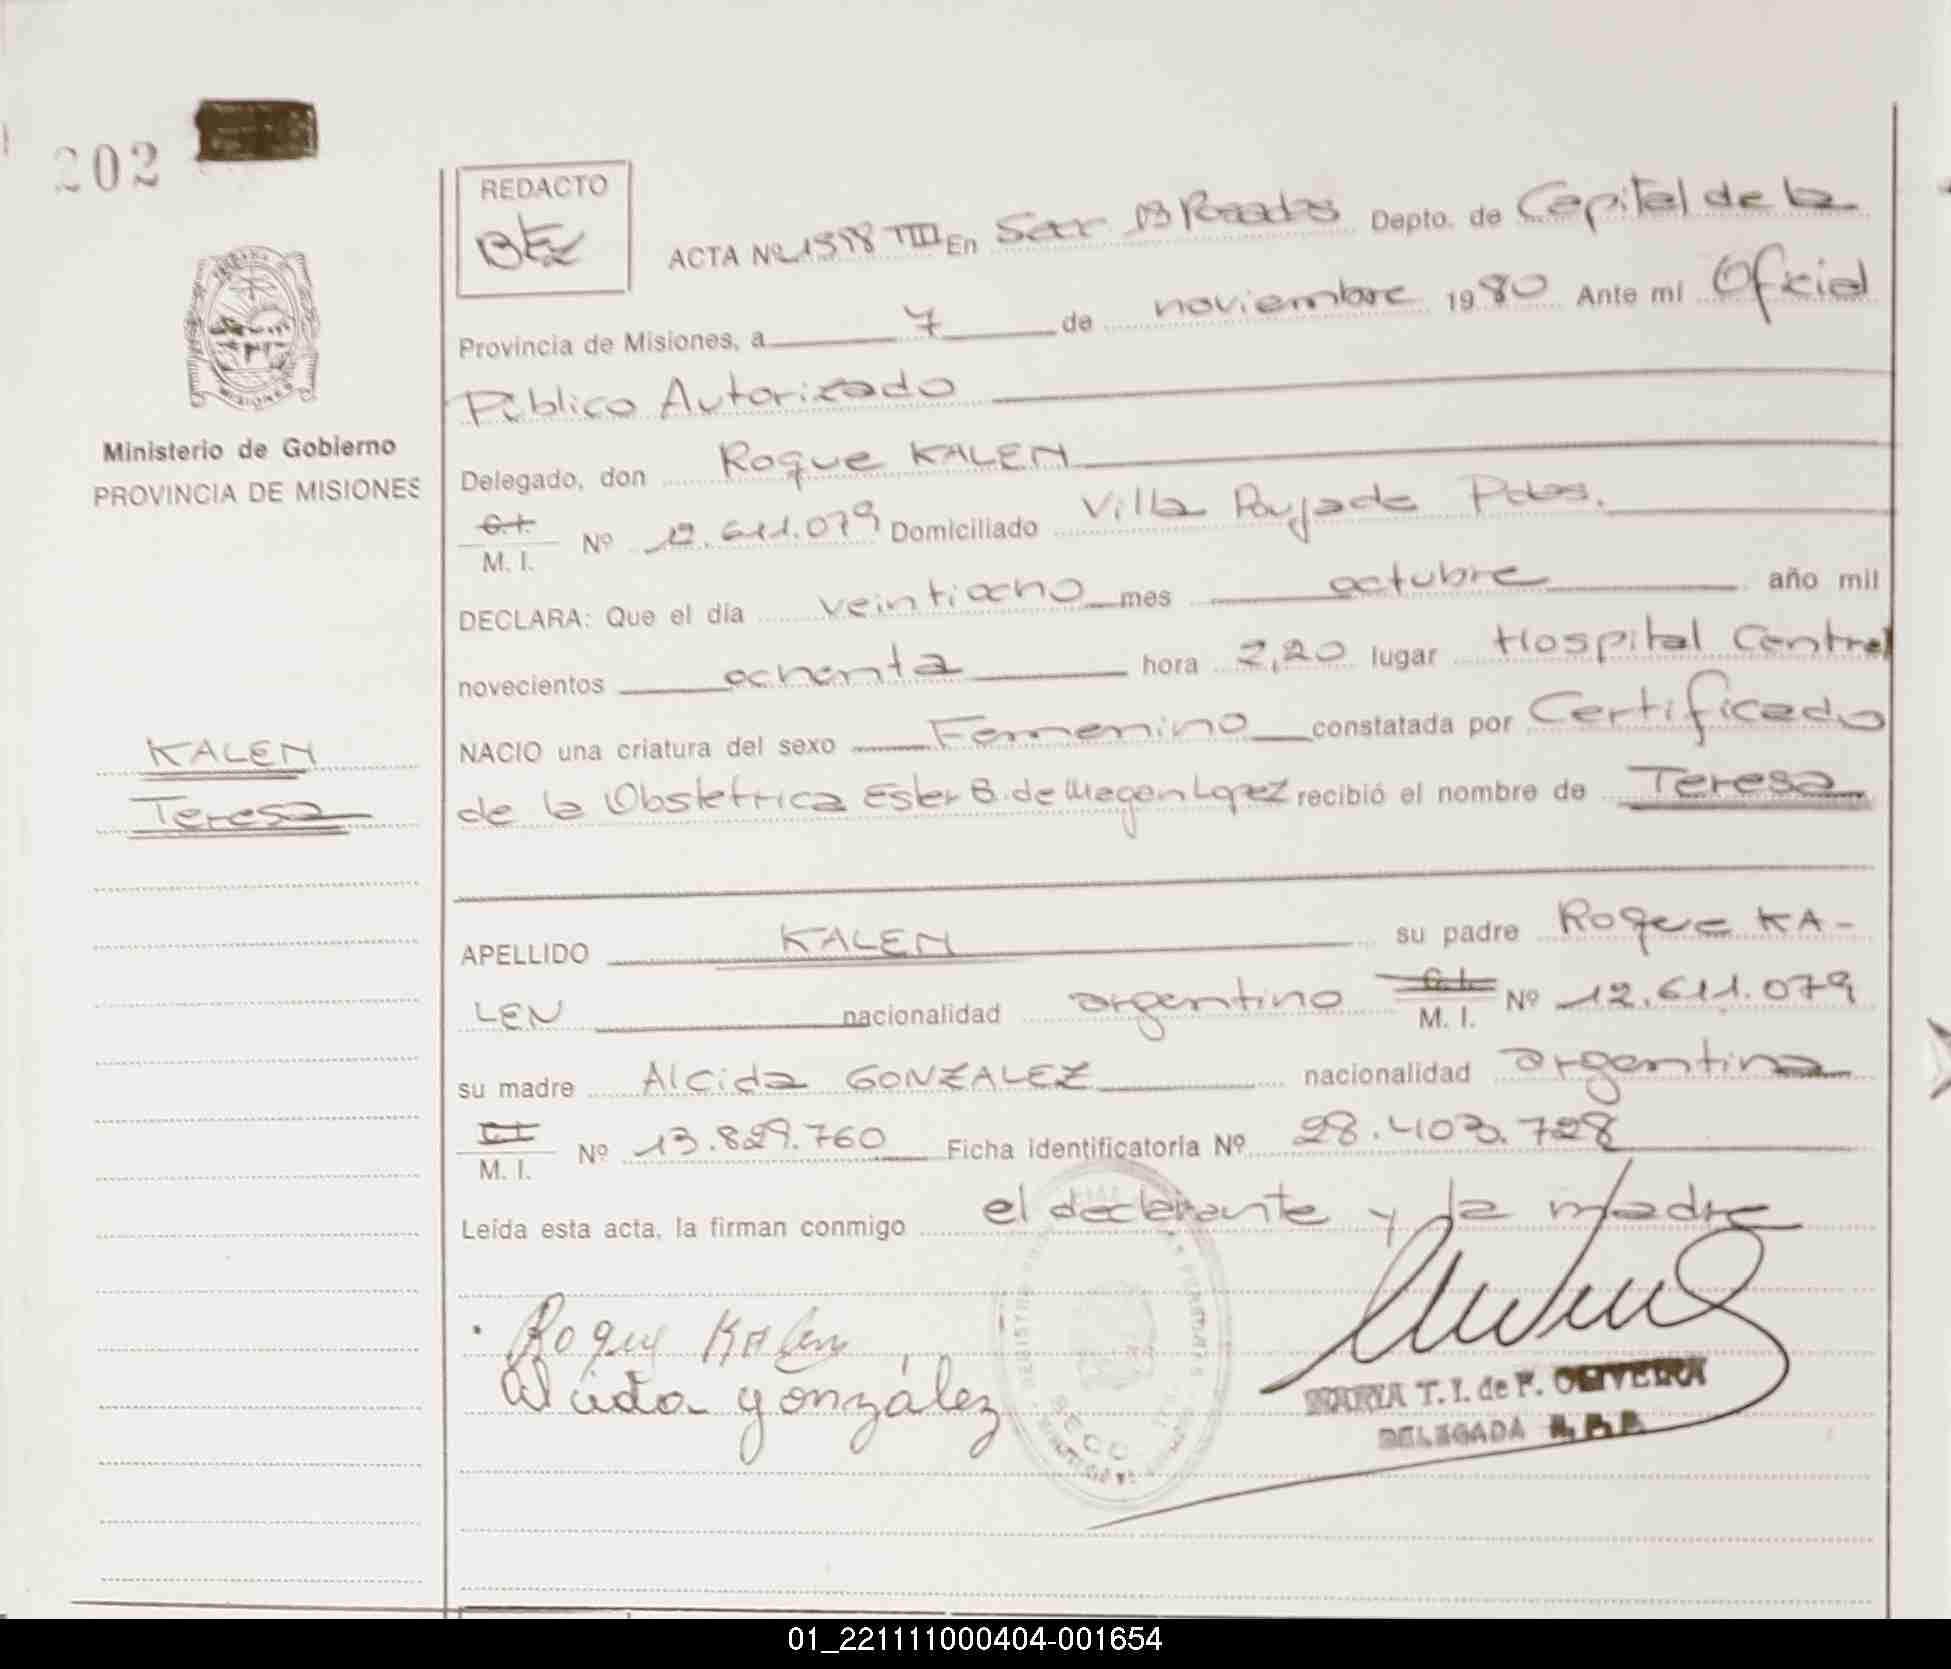 202
REDACTO
ACTA Nº 1398 TIII En Secc 1B Posadas Depto. de Capital de la
Provincia de Misiones, a 7 de noviembre 1980 Ante mí Oficial
Público Autorizado
Ministerio de Gobierno
PROVINCIA DE MISIONES
Delegado, don Roque KALEN
C.I.
M. I. Nº 12.611.079 Domiciliado Villa Poujade Pdas.
DECLARA: Que el día veintiocho mes octubre año mil
novecientos ochenta hora 2,20 lugar Hospital Central
KALEN
Teresa
NACIO una criatura del sexo Femenino constatada por Certificado
de la Obstetrica Ester B. de Lopez recibió el nombre de Teresa
APELLIDO KALEN su padre Roque KA-
LEN nacionalidad argentino C.I. M. I. Nº 12.611.079
su madre Alcida GONZALEZ nacionalidad argentina
C.I.
M. I. Nº 13.829.760 Ficha identificatoria Nº 28.403.728
Leída esta acta, la firman conmigo el declarante y la madre
Roque Kalen
Alcida gonzález
MARIA T. I. de F. OLIVEIRA
DELEGADA
01_221111000404-001654